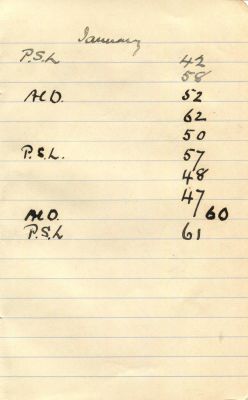 January
P.S.L 42
58
A.D. 52
62
50
P.S.L. 57
48
47
A.D. 60
P.S.L 61